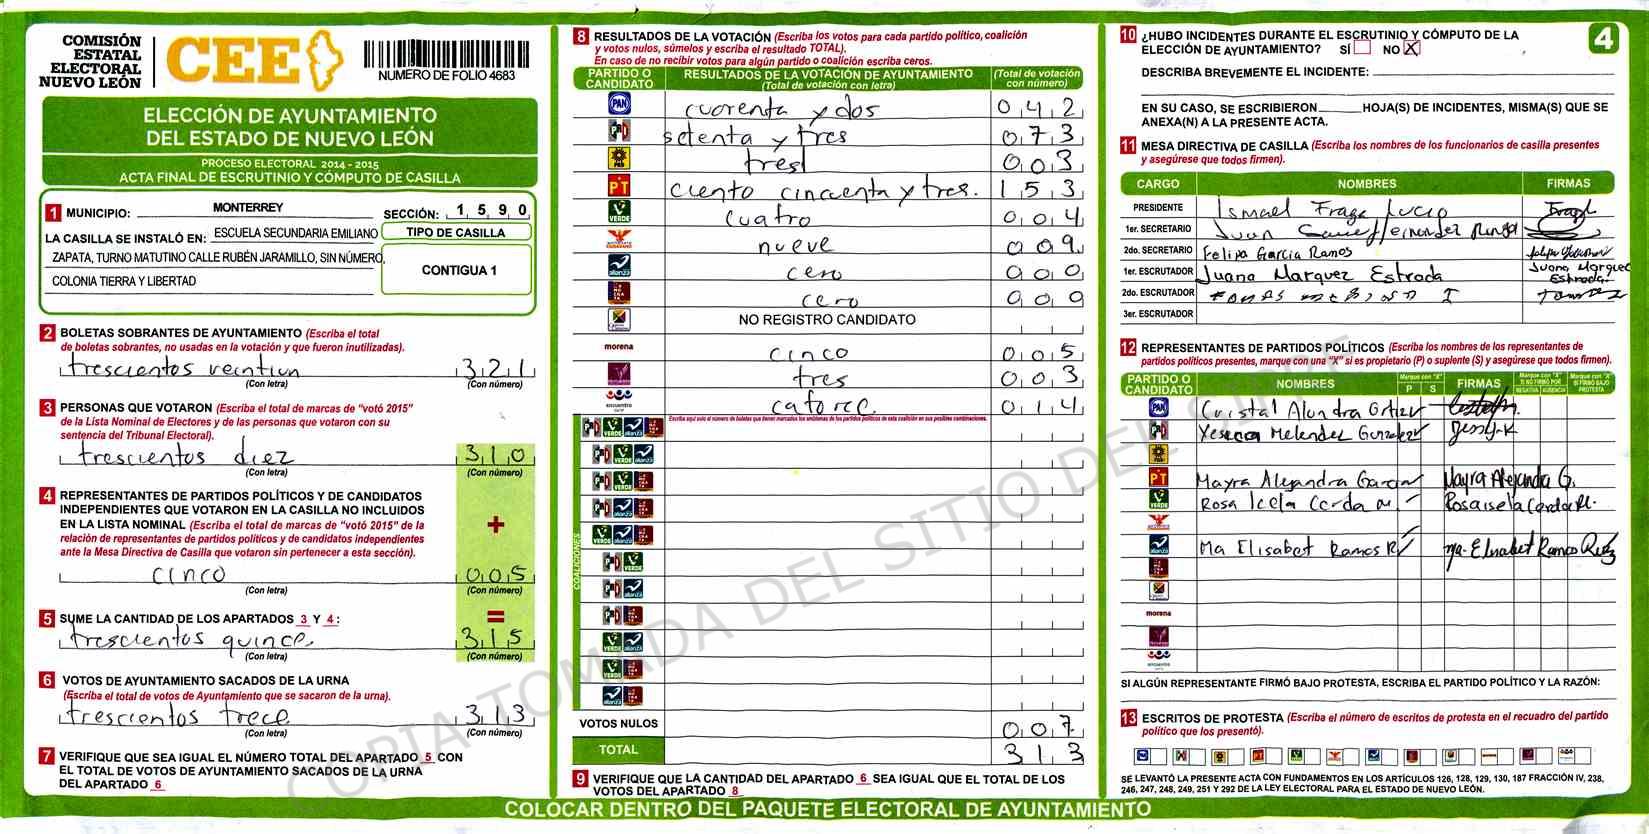 COMISIÓN
ESTATAL
ELECTORAL
NUEVO LEÓN
CEE
NUMERO DE FOLIO 4683
ELECCIÓN DE AYUNTAMIENTO
DEL ESTADO DE NUEVO LEÓN
PROCESO ELECTORAL 2014 - 2015
ACTA FINAL DE ESCRUTINIO Y CÓMPUTO DE CASILLA
1 MUNICIPIO: MONTERREY SECCIÓN: 1 5 9 0
LA CASILLA SE INSTALÓ EN: ESCUELA SECUNDARIA EMILIANO
ZAPATA, TURNO MATUTINO CALLE RUBÉN JARAMILLO, SIN NÚMERO,
COLONIA TIERRA Y LIBERTAD
TIPO DE CASILLA
CONTIGUA 1
2 BOLETAS SOBRANTES DE AYUNTAMIENTO (Escriba el total
de boletas sobrantes, no usadas en la votación y que fueron inutilizadas).
trescientos veintiun 3 2 1
(Con letra) (Con número)
3 PERSONAS QUE VOTARON (Escriba el total de marcas de "votó 2015"
de la Lista Nominal de Electores y de las personas que votaron con su
sentencia del Tribunal Electoral).
trescientos diez 3 1 0
(Con letra) (Con número)
4 REPRESENTANTES DE PARTIDOS POLÍTICOS Y DE CANDIDATOS
INDEPENDIENTES QUE VOTARON EN LA CASILLA NO INCLUIDOS
EN LA LISTA NOMINAL (Escriba el total de marcas de "votó 2015" de la
relación de representantes de partidos políticos y de candidatos independientes
ante la Mesa Directiva de Casilla que votaron sin pertenecer a esta sección).
+
cinco 0 0 5
(Con letra) (Con número)
5 SUME LA CANTIDAD DE LOS APARTADOS 3 Y 4 : =
trescientos quince 3 1 5
(Con letra) (Con número)
6 VOTOS DE AYUNTAMIENTO SACADOS DE LA URNA
(Escriba el total de votos de Ayuntamiento que se sacaron de la urna).
trescientos trece 3 1 3
(Con letra) (Con número)
7 VERIFIQUE QUE SEA IGUAL EL NÚMERO TOTAL DEL APARTADO 5 CON
EL TOTAL DE VOTOS DE AYUNTAMIENTO SACADOS DE LA URNA
DEL APARTADO 6
8 RESULTADOS DE LA VOTACIÓN (Escriba los votos para cada partido político, coalición
y votos nulos, súmelos y escriba el resultado TOTAL).
En caso de no recibir votos para algún partido o coalición escriba ceros.
PARTIDO O CANDIDATO RESULTADOS DE LA VOTACIÓN DE AYUNTAMIENTO (Total de votación con letra) (Total de votación con número)
PAN cuarenta y dos 0 4 2
PRI setenta y tres 0 7 3
PRD tres 0 0 3
PT ciento cincuenta y tres. 1 5 3
VERDE cuatro 0 0 4
nueve 0 0 9
alianza cero 0 0 0
cero 0 0 0
NO REGISTRO CANDIDATO
morena cinco 0 0 5
tres 0 0 3
encuentro catorce 0 1 4
COALICIONES
VOTOS NULOS 0 0 7
TOTAL 3 1 3
9 VERIFIQUE QUE LA CANTIDAD DEL APARTADO 6 SEA IGUAL QUE EL TOTAL DE LOS
VOTOS DEL APARTADO 8
10 ¿HUBO INCIDENTES DURANTE EL ESCRUTINIO Y CÓMPUTO DE LA
ELECCIÓN DE AYUNTAMIENTO? SÍ NO X
4
DESCRIBA BREVEMENTE EL INCIDENTE:
EN SU CASO, SE ESCRIBIERON HOJA(S) DE INCIDENTES, MISMA(S) QUE SE
ANEXA(N) A LA PRESENTE ACTA.
11 MESA DIRECTIVA DE CASILLA (Escriba los nombres de los funcionarios de casilla presentes
y asegúrese que todos firmen).
CARGO NOMBRES FIRMAS
PRESIDENTE Ismael Fraga Lucio
1er. SECRETARIO Juan
2do. SECRETARIO Felipa Garcia Ramos
1er. ESCRUTADOR Juana Marquez Estrada Juana Marquez Estrada
2do. ESCRUTADOR
3er. ESCRUTADOR
12 REPRESENTANTES DE PARTIDOS POLÍTICOS (Escriba los nombres de los representantes de
partidos políticos presentes, marque con una "X" si es propietario (P) o suplente (S) y asegúrese que todos firmen).
PARTIDO O CANDIDATO NOMBRES Marque con "X" P S FIRMAS Marque con "X" SI NO FIRMÓ POR NEGATIVA AUSENCIA Marque con "X" SI FIRMÓ BAJO PROTESTA
PAN Cristal Alondra Ortiz
PRI Yesenia Melendez Gonzalez
PRD
PT Mayra Alejandra Garcia Mayra Alejandra G.
VERDE Rosa Icela Cerda M.
alianza Ma Elisabet Ramos R Ma. Elisabet Ramos Ruiz
morena
encuentro
SI ALGÚN REPRESENTANTE FIRMÓ BAJO PROTESTA, ESCRIBA EL PARTIDO POLÍTICO Y LA RAZÓN:
13 ESCRITOS DE PROTESTA (Escriba el número de escritos de protesta en el recuadro del partido
político que los presentó).
SE LEVANTÓ LA PRESENTE ACTA CON FUNDAMENTOS EN LOS ARTÍCULOS 126, 128, 129, 130, 187 FRACCIÓN IV, 238,
246, 247, 248, 249, 251 Y 292 DE LA LEY ELECTORAL PARA EL ESTADO DE NUEVO LEÓN.
COLOCAR DENTRO DEL PAQUETE ELECTORAL DE AYUNTAMIENTO
COPIA TOMADA DEL SITIO DEL SIPRE